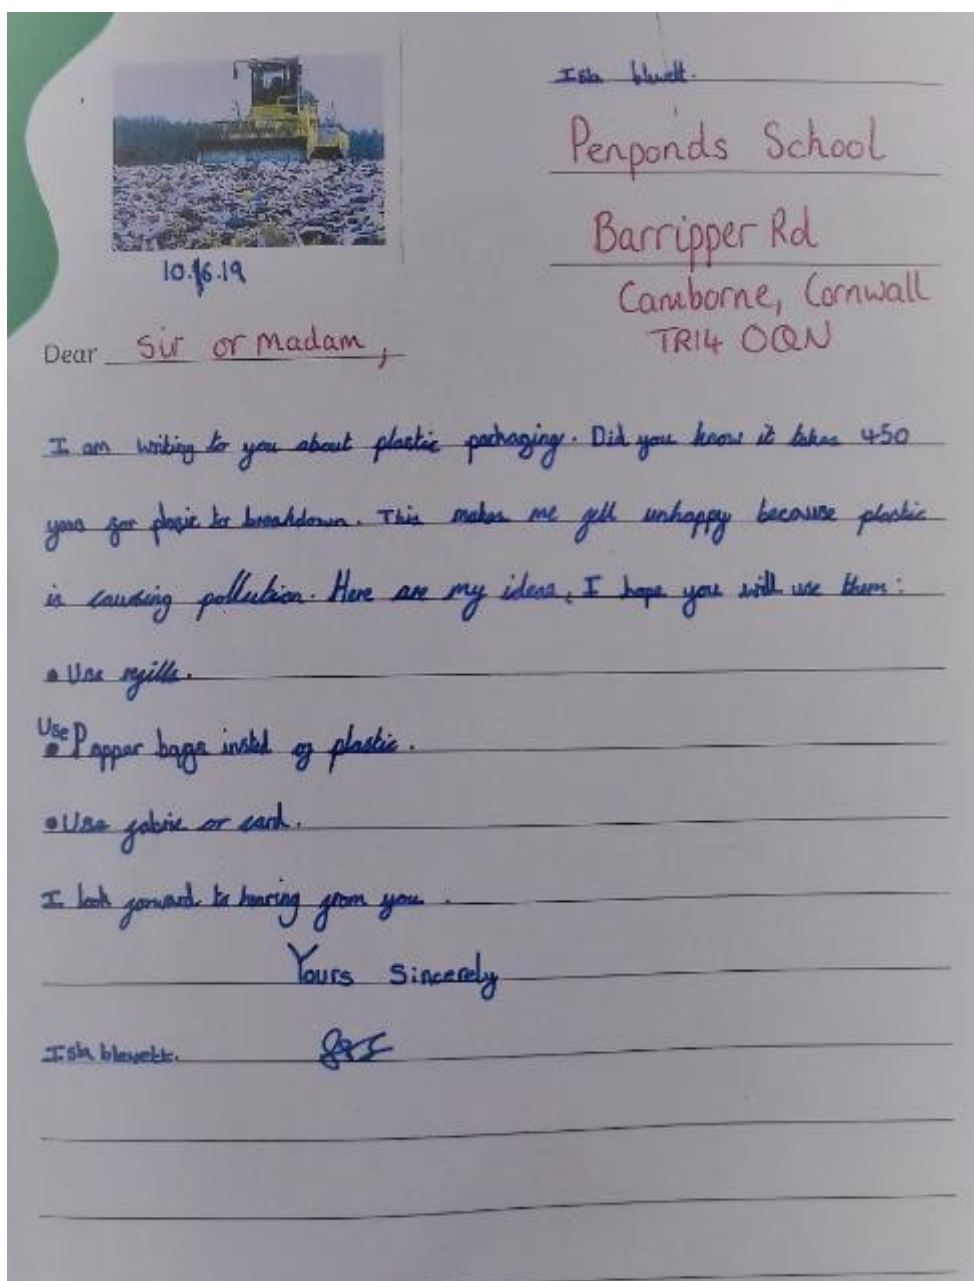 Isla blewett.
Penponds School
Barripper Rd
Camborne, Cornwall
TR14 0QN
10.6.19
Dear Sir or Madam,
I am writing to you about plastic packaging. Did you know it takes 450
years for plasic to breakdown. This makes me fell unhappy because plastic
is causing pollution. Here are my ideas, I hope you will use them:
• Use refills.
• Use Pappar bags insted of plastic.
• Use fabric or card.
I look forward to hearing from you.
Yours Sincerely
Isla blewett.